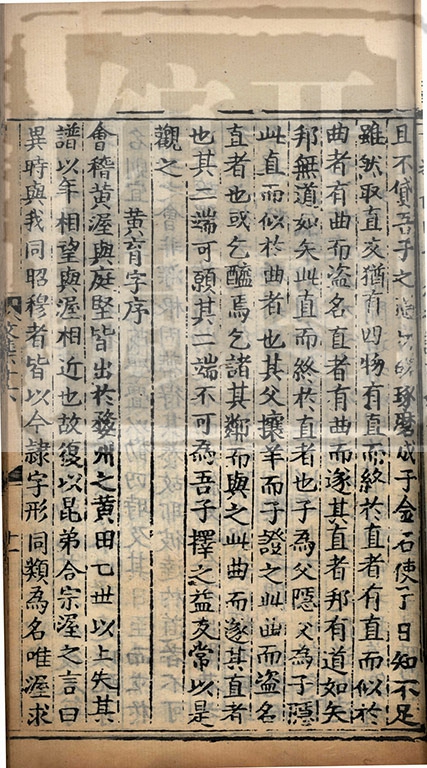 且不貸吾子之過與?琢磨成于金石使子日知不足
雖然取直友猶有四物有直而終於直者有直而似於
曲者有曲而盗名直者有曲而遂其直者邦有道如矢
邦無道如矢此直而終於直者也子為父隱父為子隱
此直而似於曲者也其父攘羊而子證之此曲而盗名
直者也或乞醯焉乞諸其鄰而與之此曲而遂其直者
也其二端可願其二端不可為吾子擇之益友常以是
觀之
黄育字序
會稽黄渥與庭堅皆出於婺州之黄田七世以上失其
譜以年相望與渥相近也故復以昆弟合宗渥之言曰
異時與我同昭穆者皆以今隷字形同類為名唯渥求